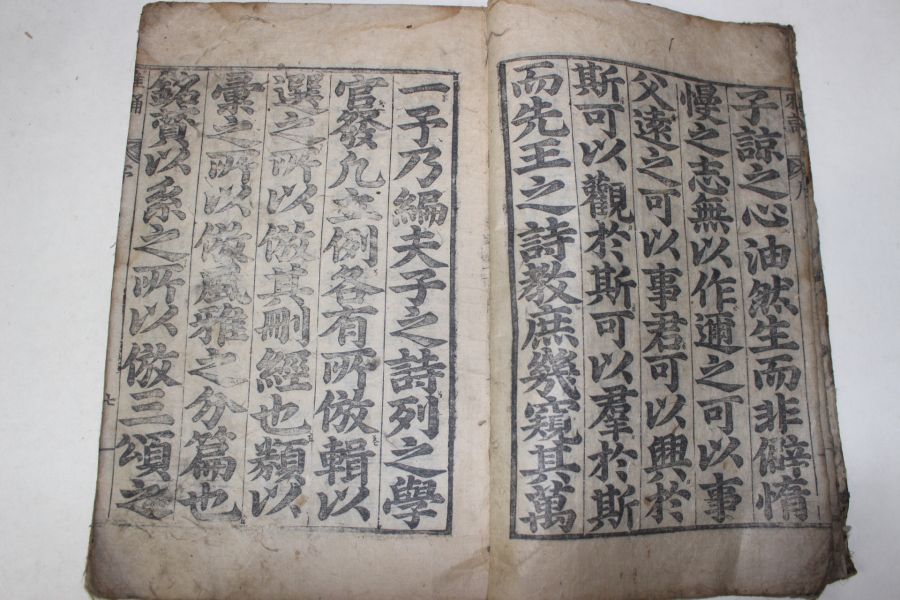 子諒之心油然生而非僻惰
慢之志無以作邇之可以事
父遠之可以事君可以興於
斯可以觀於斯可以羣於斯
而先王之詩教庶幾窺其萬
一予乃編夫子之詩列之學
官發凡立例各有所倣輯以
選之所以倣其刪經也類以
彙之所以倣風雅之分篇也
銘贊以系之所以倣三頌之